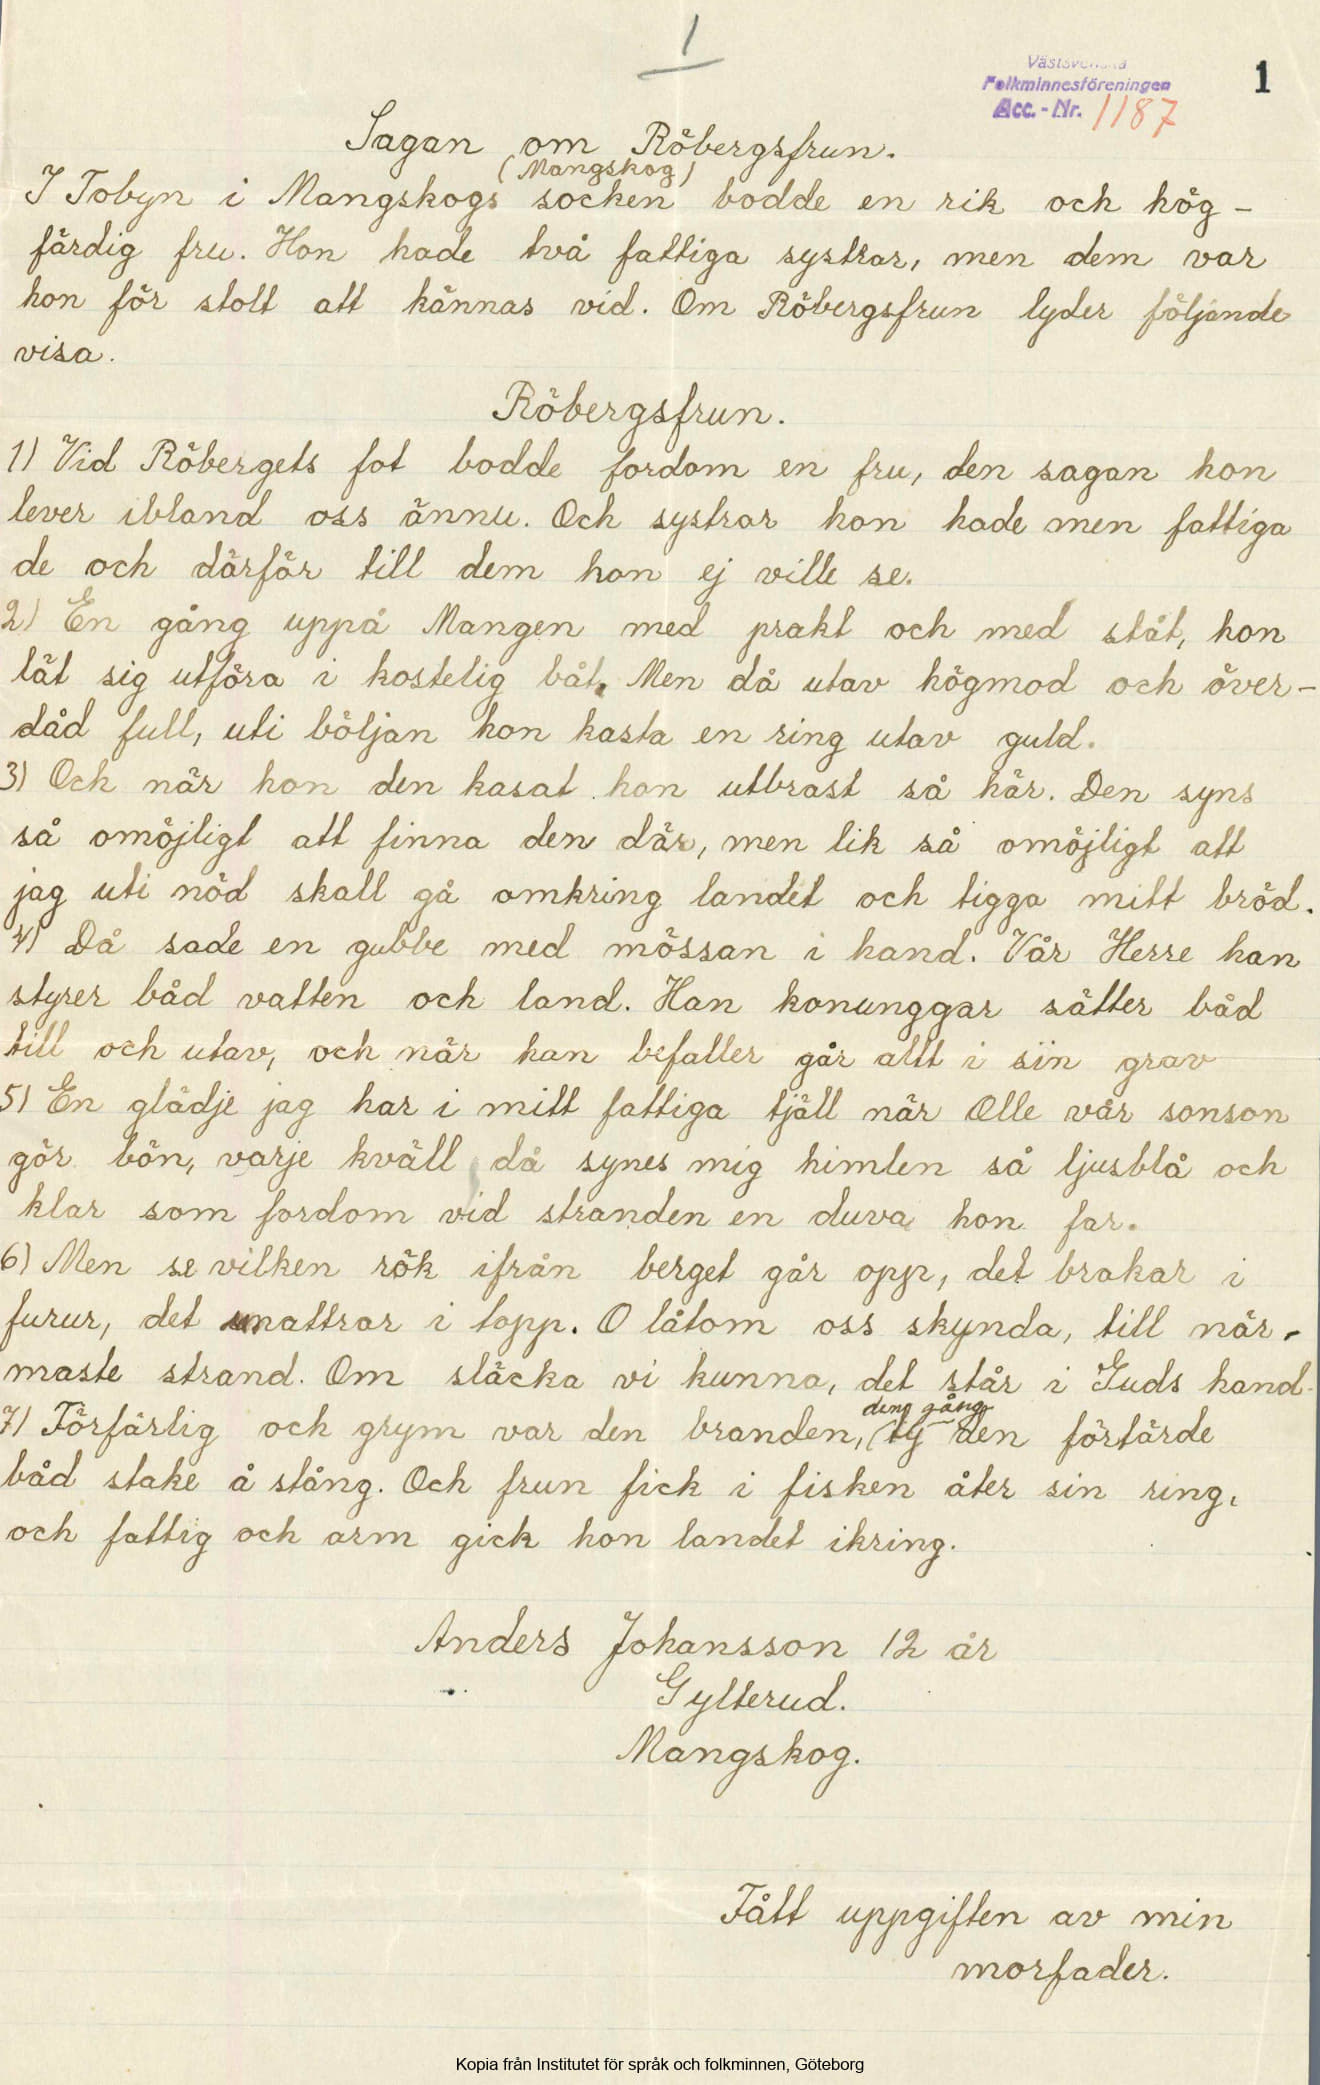 1
Västsvenska
Folkminnesföreningen
Acc.-Nr. 1187
1
Sagan om Röbergsfrun.
(Mangskog)
I Tobyn i Mangskogs socken bodde en rik och hög-
färdig fru. Hon hade två fattiga systrar, men dem var
hon för stolt att kännas vid. Om Röbergsfrun lyder följande
visa.
Röbergsfrun.
1) Vid Röbergets fot bodde fordom en fru, den sagan hon
lever ibland oss ännu. Och systrar hon hade men fattiga
de och därför till dem hon ej ville se.
2) En gång uppå Mangen med prakt och med ståt, hon
lät sig utföra i kostelig båt. Men då utav högmod och över-
dåd full, uti böljan hon kasta en ring utav guld.
3) Och när hon den kasat hon utbrast så här. Den syns
så omöjligt att finna den där, men lik så omöjligt att
jag uti nöd skall gå omkring landet och tigga mitt bröd.
4) Då sade en gubbe med mössan i hand. Vår Herre han
styrer båd vatten och land. Han konunggar sätter båd
till och utav, och när han befaller går allt i sin grav
5) En glädje jag har i mitt fattiga tjäll när Olle vår sonson
gör bön, varje kväll då synes mig himlen så ljusblå och
klar som fordom vid stranden en duva hon far.
6) Men se vilken rök ifrån berget går opp, det brakar i
furur, det smattrar i topp. O låtom oss skynda, till när-
maste strand. Om släcka vi kunna, det står i Guds hand.
den gång
7) Förfärlig och grym var den branden, (ty den förtärde
båd stake å stång. Och frun fick i fisken åter sin ring,
och fattig och arm gick hon landet ikring.
Anders Johansson 12 år
Gylterud.
Mangskog.
Fått uppgiften av min
morfader.
Kopia från Institutet för språk och folkminnen, Göteborg